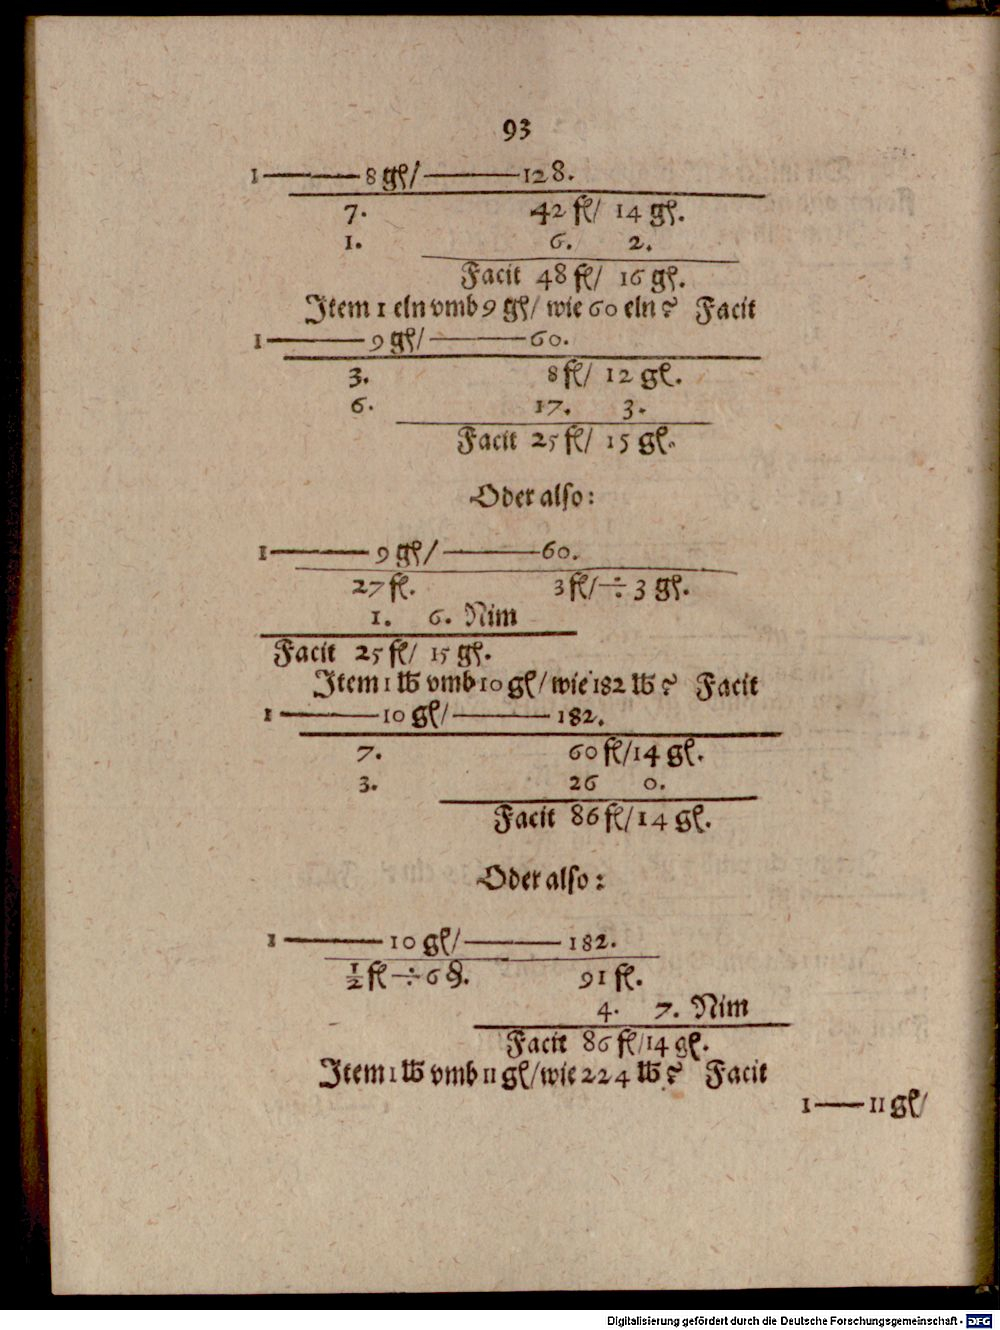 93
1 ——— 8 gl/ ——— 128.
7. 42 fl/ 14 gl.
1. 6. 2.
Facit 48 fl/ 16 gl.
Item 1 eln vmb 9 gl/ wie 60 eln? Facit
1 ——— 9 gl/ ——— 60.
3. 8 fl/ 12 gl.
6. 17. 3.
Facit 25 fl/ 15 gl.
Oder also:
1 ——— 9 gl/ ——— 60.
27 fl. 3 fl/ ÷ 3 gl.
1. 6. Nim
Facit 25 fl/ 15 gl.
Item 1 ℔ vmb 10 gl/ wie 182 ℔? Facit
1 ——— 10 gl/ ——— 182.
7. 60 fl/ 14 gl.
3. 26 0.
Facit 86 fl/ 14 gl.
Oder also:
1 ——— 10 gl/ ——— 182.
½ fl ÷ 6 ₰. 91 fl.
4. 7. Nim
Facit 86 fl/ 14 gl.
Item 1 ℔ vmb 11 gl/ wie 224 ℔? Facit
1 —— 11 gl/
Digitalisierung gefördert durch die Deutsche Forschungsgemeinschaft - DFG